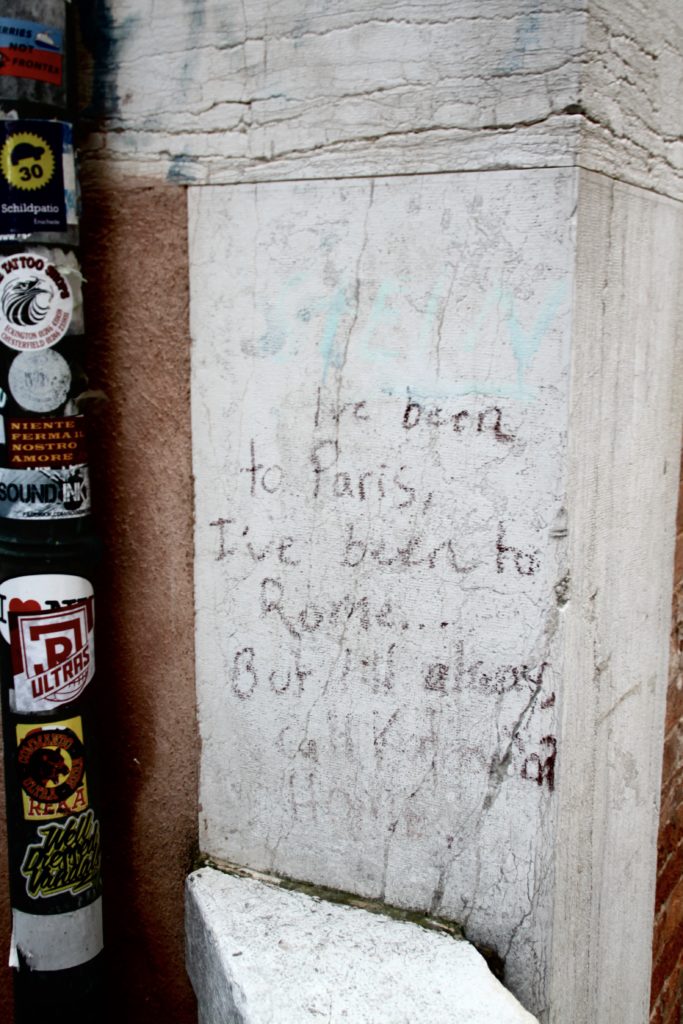 NOT
FRONTEX
30
Schildpatio
Enschede
TATTOO SHOPS
ECKINGTON
CHESTERFIELD
NIENTE
FERMA IL
NOSTRO
AMORE
SOUND INK
I
ULTRAS
I've been
to Paris,
I've been to
Rome...
But I'll always
call
Home